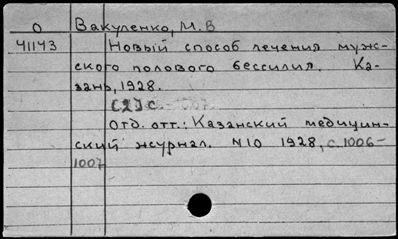 О Вакуленко, М. В
41143 Новый способ лечения муж-
ского полового бессилия. Ка-
зань, 1928.
[2] с.
Отд. отт.: Казанский медицин-
ский журнал. N10 1928, с. 1006-
1007